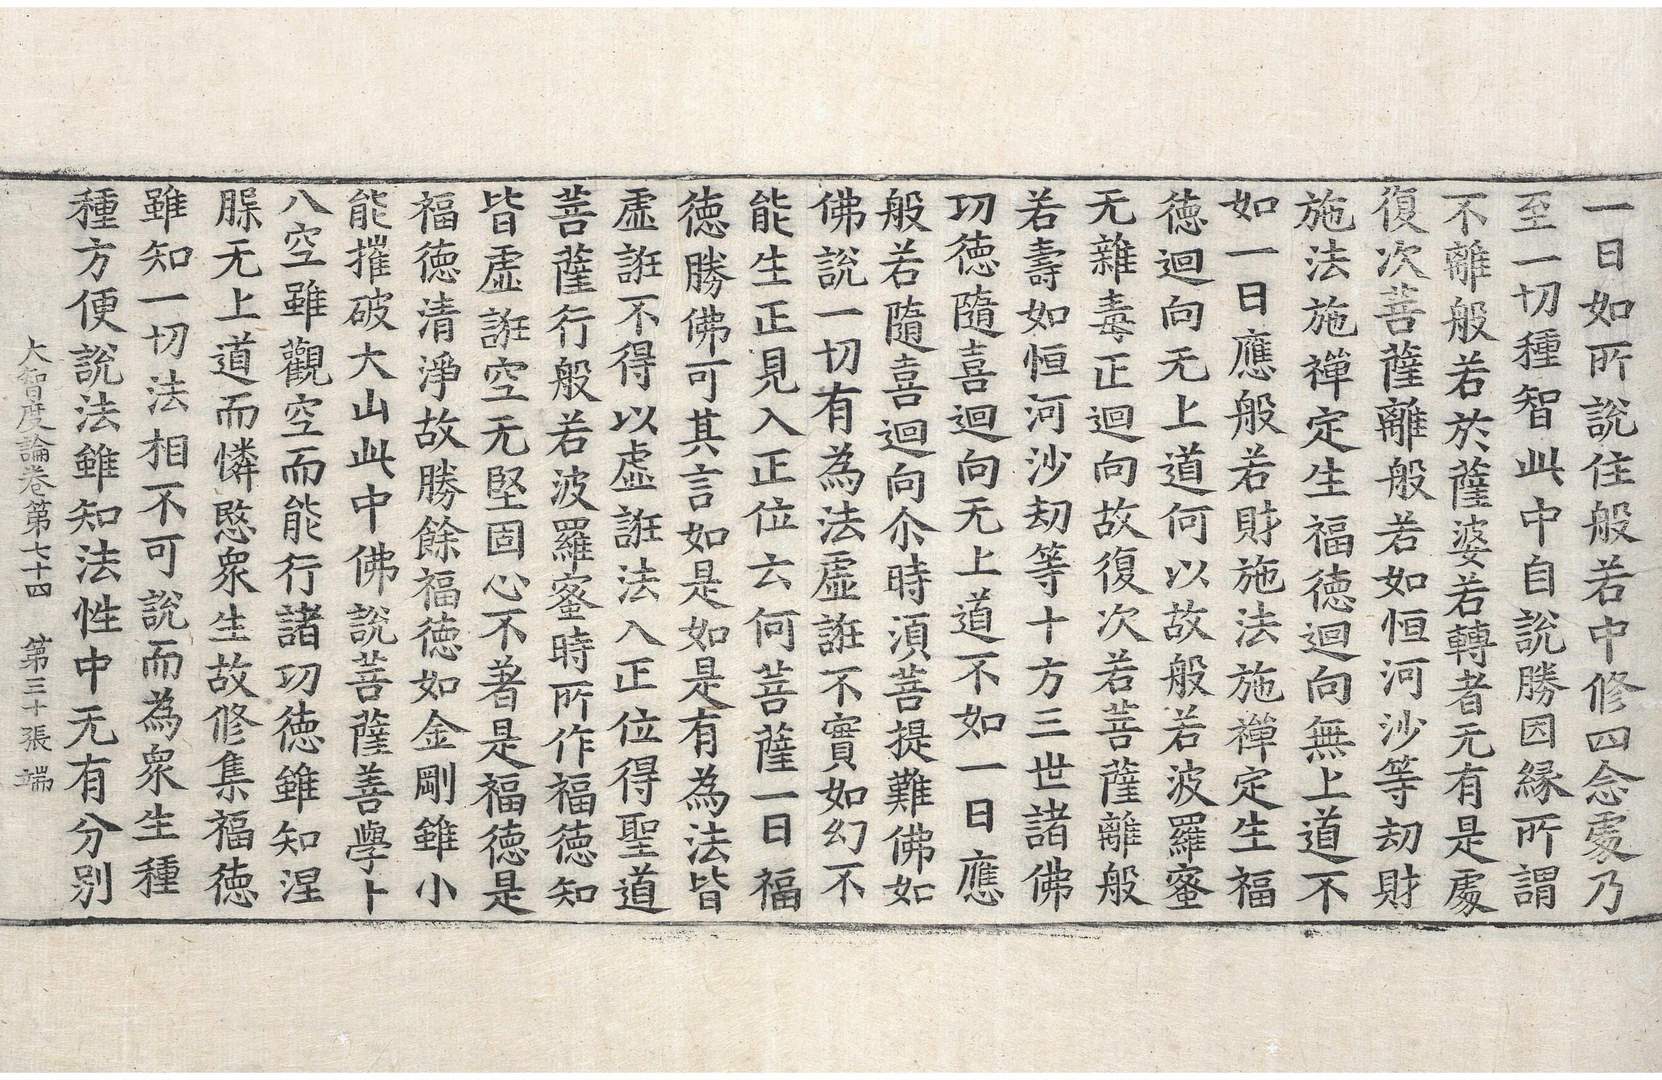 一日如所說住般若中修四念處乃
至一切種智此中自說勝因縁所謂
不離般若於薩婆若轉者无有是處
復次菩薩離般若如恒河沙等劫財
施法施禪定生福徳迴向無上道不
如一日應般若財施法施禪定生福
徳迴向无上道何以故般若波羅蜜
无雜毒正迴向故復次若菩薩離般
若壽如恒河沙劫等十方三世諸佛
功徳隨喜迴向无上道不如一日應
般若隨喜迴向尒時湏菩提難佛如
佛說一切有為法虛誑不實如幻不
能生正見入正位云何菩薩一日福
徳勝佛可其言如是如是有為法皆
虛誑不得以虛誑法入正位得聖道
菩薩行般若波羅蜜時所作福徳知
皆虛誑空无堅固心不著是福徳是
福徳清淨故勝餘福徳如金剛雖小
能摧破大山此中佛說菩薩善學十
八空雖觀空而能行諸功徳雖知涅
槃无上道而憐愍衆生故修集福徳
雖知一切法相不可說而為衆生種
種方便說法雖知法性中无有分別
大智度論卷第七十四 第三十張 端